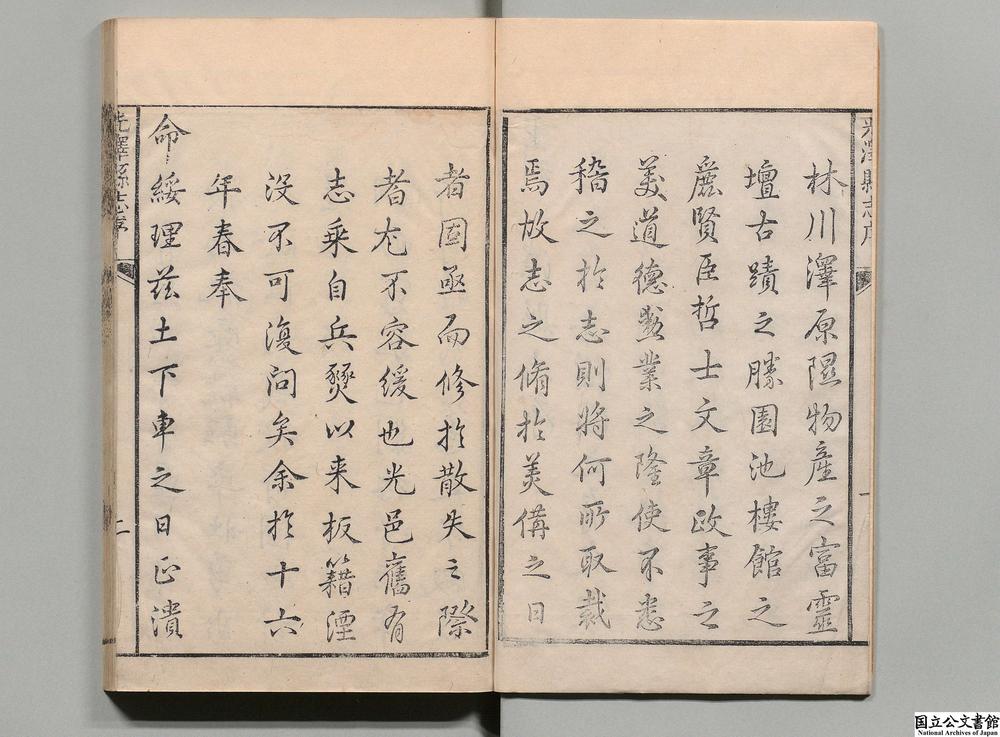 光澤縣志序
林川澤原隰物產之富靈
壇古蹟之勝園池樓館之
麗賢臣哲士文章政事之
美道德勲業之隆使不悉
稽之於志則將何所取裁
焉故志之脩於美備之日
者固亟而修於散失之際
者尤不容緩也光邑舊有
志乘自兵燹以来板籍湮
沒不可復问矣余於十六
年春奉
命綏理茲土下車之日正潰
光澤縣志序
二
国立公文書館
National Archives of Japan